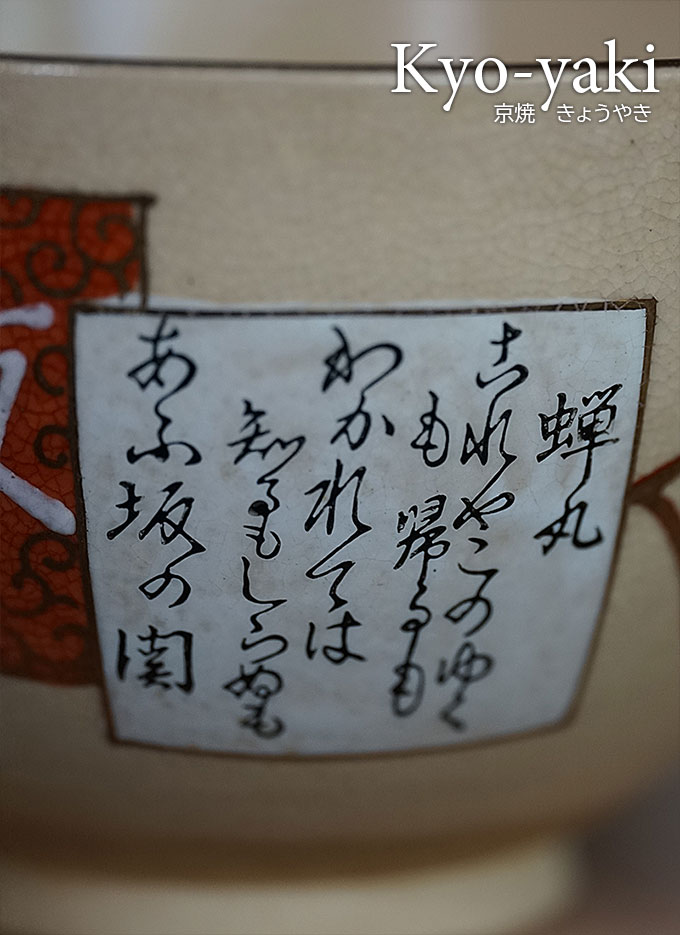 Kyo-yaki
京焼 きょうやき
蝉丸
古れやこのゆく
も帰るも
わか禮ては
知るもしらぬも
あふ坂の関